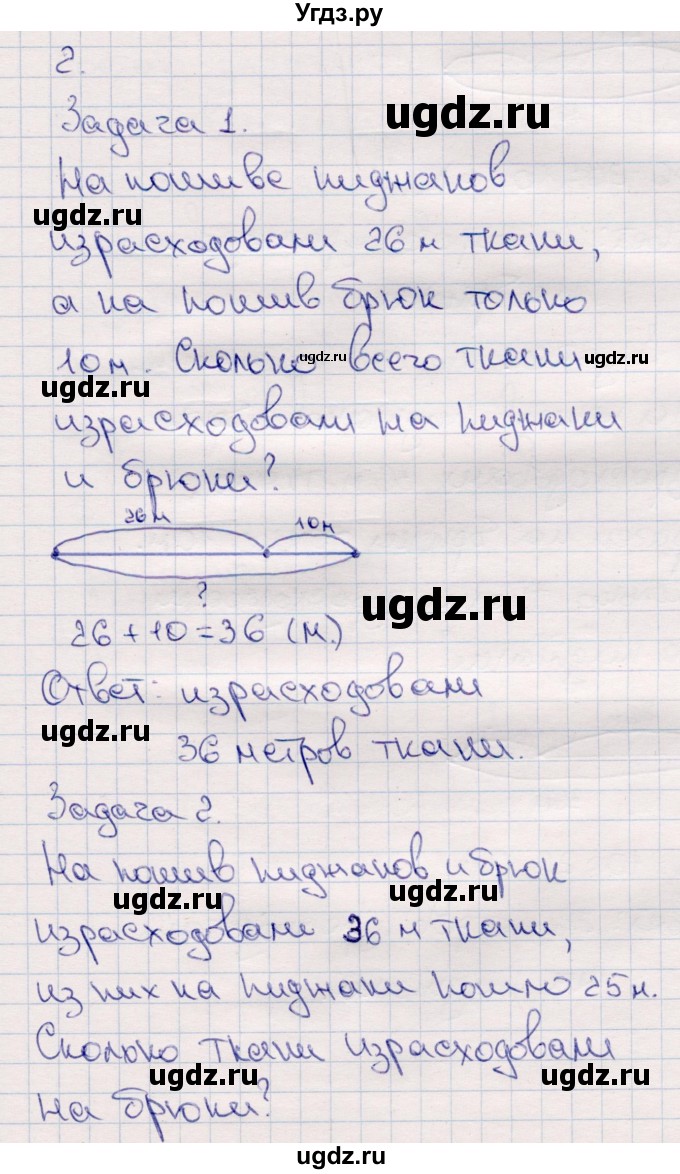 Угдз.ру
2.
Задача 1.
ugdz.ru
На пошиве пиджаков
ugdz.ru
израсходовали 26 м ткани,
а на пошив брюк только
10 м. Сколько всего ткани
ugdz.ru
ugdz.ru
ugdz.ru
израсходовали на пиджаки
и брюки?
26 м 10 м
?
ugdz.ru
26 + 10 = 36 (м.)
Ответ: израсходовали
ugdz.ru
36 метров ткани.
Задача 2.
На пошив пиджаков и брюк
ugdz.ru
ugdz.ru
израсходовали 36 м ткани,
из них на пиджаки пошло 25 м.
Сколько ткани израсходовали
ugdz.ru
ugdz.ru
на брюки?
ugdz.ru